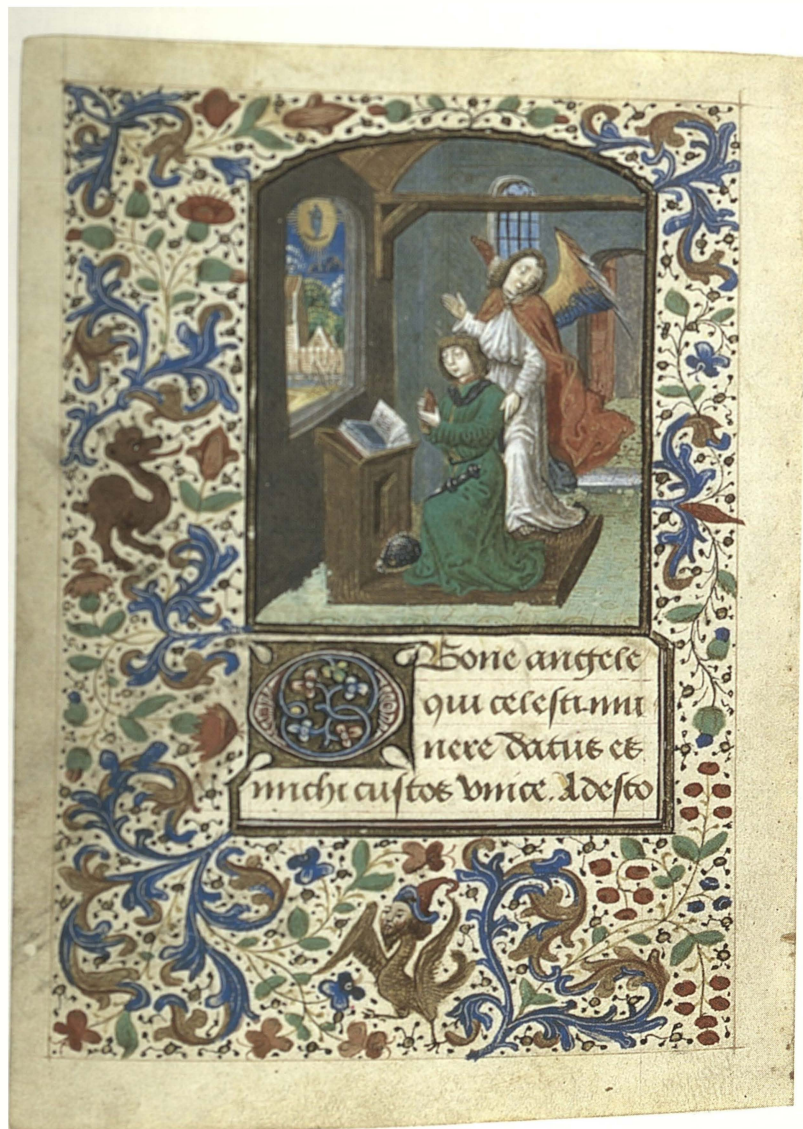 O Bone angele
qui celesti mu
nere datus es
michi custos vnice. Adesto